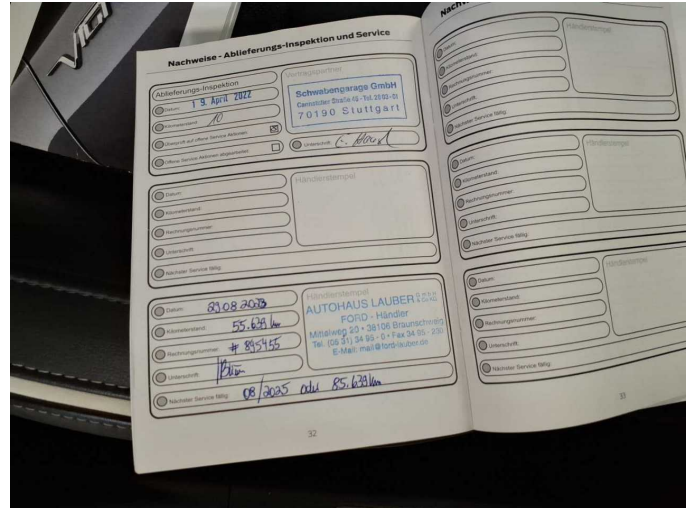 Nachweise - Ablieferungs-Inspektion und Service
Ablieferungs-Inspektion
Datum: 19. April 2022
Kilometerstand: 10
Überprüft auf offene Service Aktionen
Offene Service Aktionen abgearbeitet
Vertragspartner
Schwabengarage GmbH
70190 Stuttgart
Unterschrift:
Datum:
Kilometerstand:
Rechnungsnummer:
Unterschrift:
Nächster Service fällig:
Händlerstempel
Datum: 29.08.2023
Kilometerstand: 55.639 km
Rechnungsnummer: # 895455
Unterschrift:
Nächster Service fällig: 08/2025 oder 85.639 km
Händlerstempel
AUTOHAUS LAUBER
FORD - Händler
Mittelweg 23 • 38106 Braunschweig
Tel. (05 31) 34 95 - 0 • Fax 34 95 - 230
E-Mail: mail@ford-lauber.de
32
Datum:
Kilometerstand:
Rechnungsnummer:
Unterschrift:
Nächster Service fällig:
Händlerstempel
Datum:
Kilometerstand:
Rechnungsnummer:
Unterschrift:
Nächster Service fällig:
Händlerstempel
Datum:
Kilometerstand:
Rechnungsnummer:
Unterschrift:
Nächster Service fällig:
Händlerstempel
33